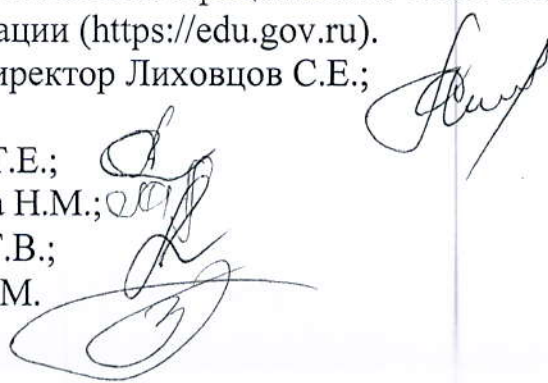 ации (https://edu.gov.ru).
иректор Лиховцов С.Е.;
Г.Е.;
а Н.М.;
Г.В.;
М.